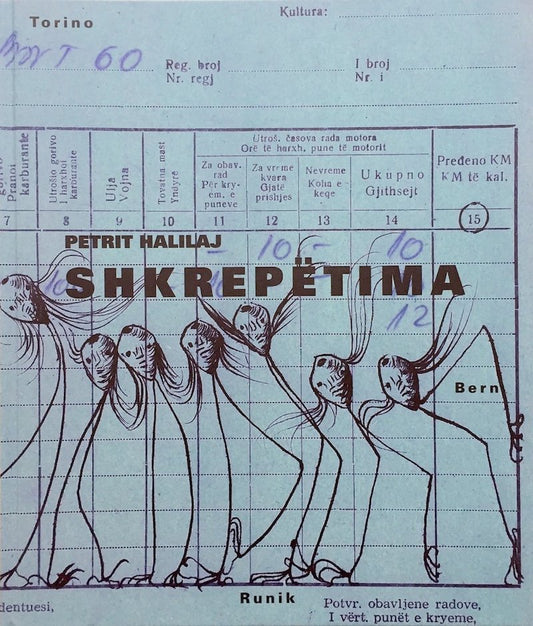 Torino
Kultura:
T 60
Reg. broj
Nr. regj
I broj
Nr. i
Utroš. časova rada motora
Orë të harxh. pune të motorit
Pranoi
karburante
Utrošio gorivo
I harxhoi
karburante
Ulja
Vojna
Tovatna mast
Yndyrë
Za obav.
rad
Për kry-
em. e
puneve
Za vreme
kvara
Gjatë
prishjes
Nevreme
Koha e
keqe
Ukupno
Gjithsejt
Pređeno KM
KM të kal.
7 8 9 10 11 12 13 14 15
PETRIT HALILAJ
10 - 10
SHKREPËTIMA
10
12
Bern
Runik
dentuesi,
Potvr. obavljene radove,
I vërt. punët e kryeme,